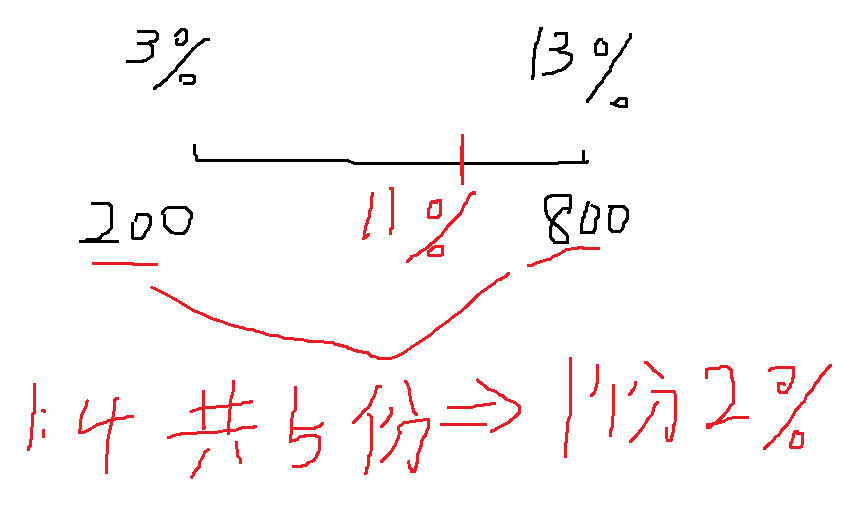 3% 13%
200 11% 800
1:4 共5份⇒1份2%